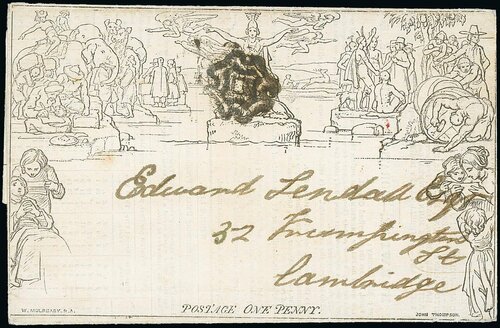 Edward Lendall Esqr
32 Trumpington
St
Cambridge
W. MULREADY. R.A.
POSTAGE ONE PENNY.
JOHN THOMPSON.